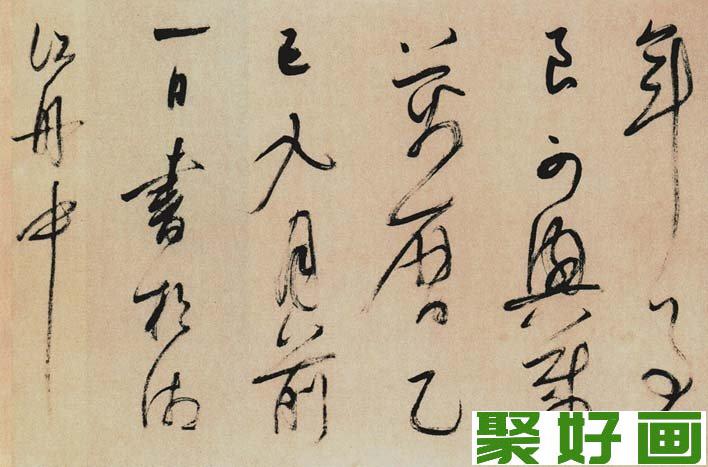 年
良可
萬曆乙
巳九月前
一日書於
江舟中
聚好画